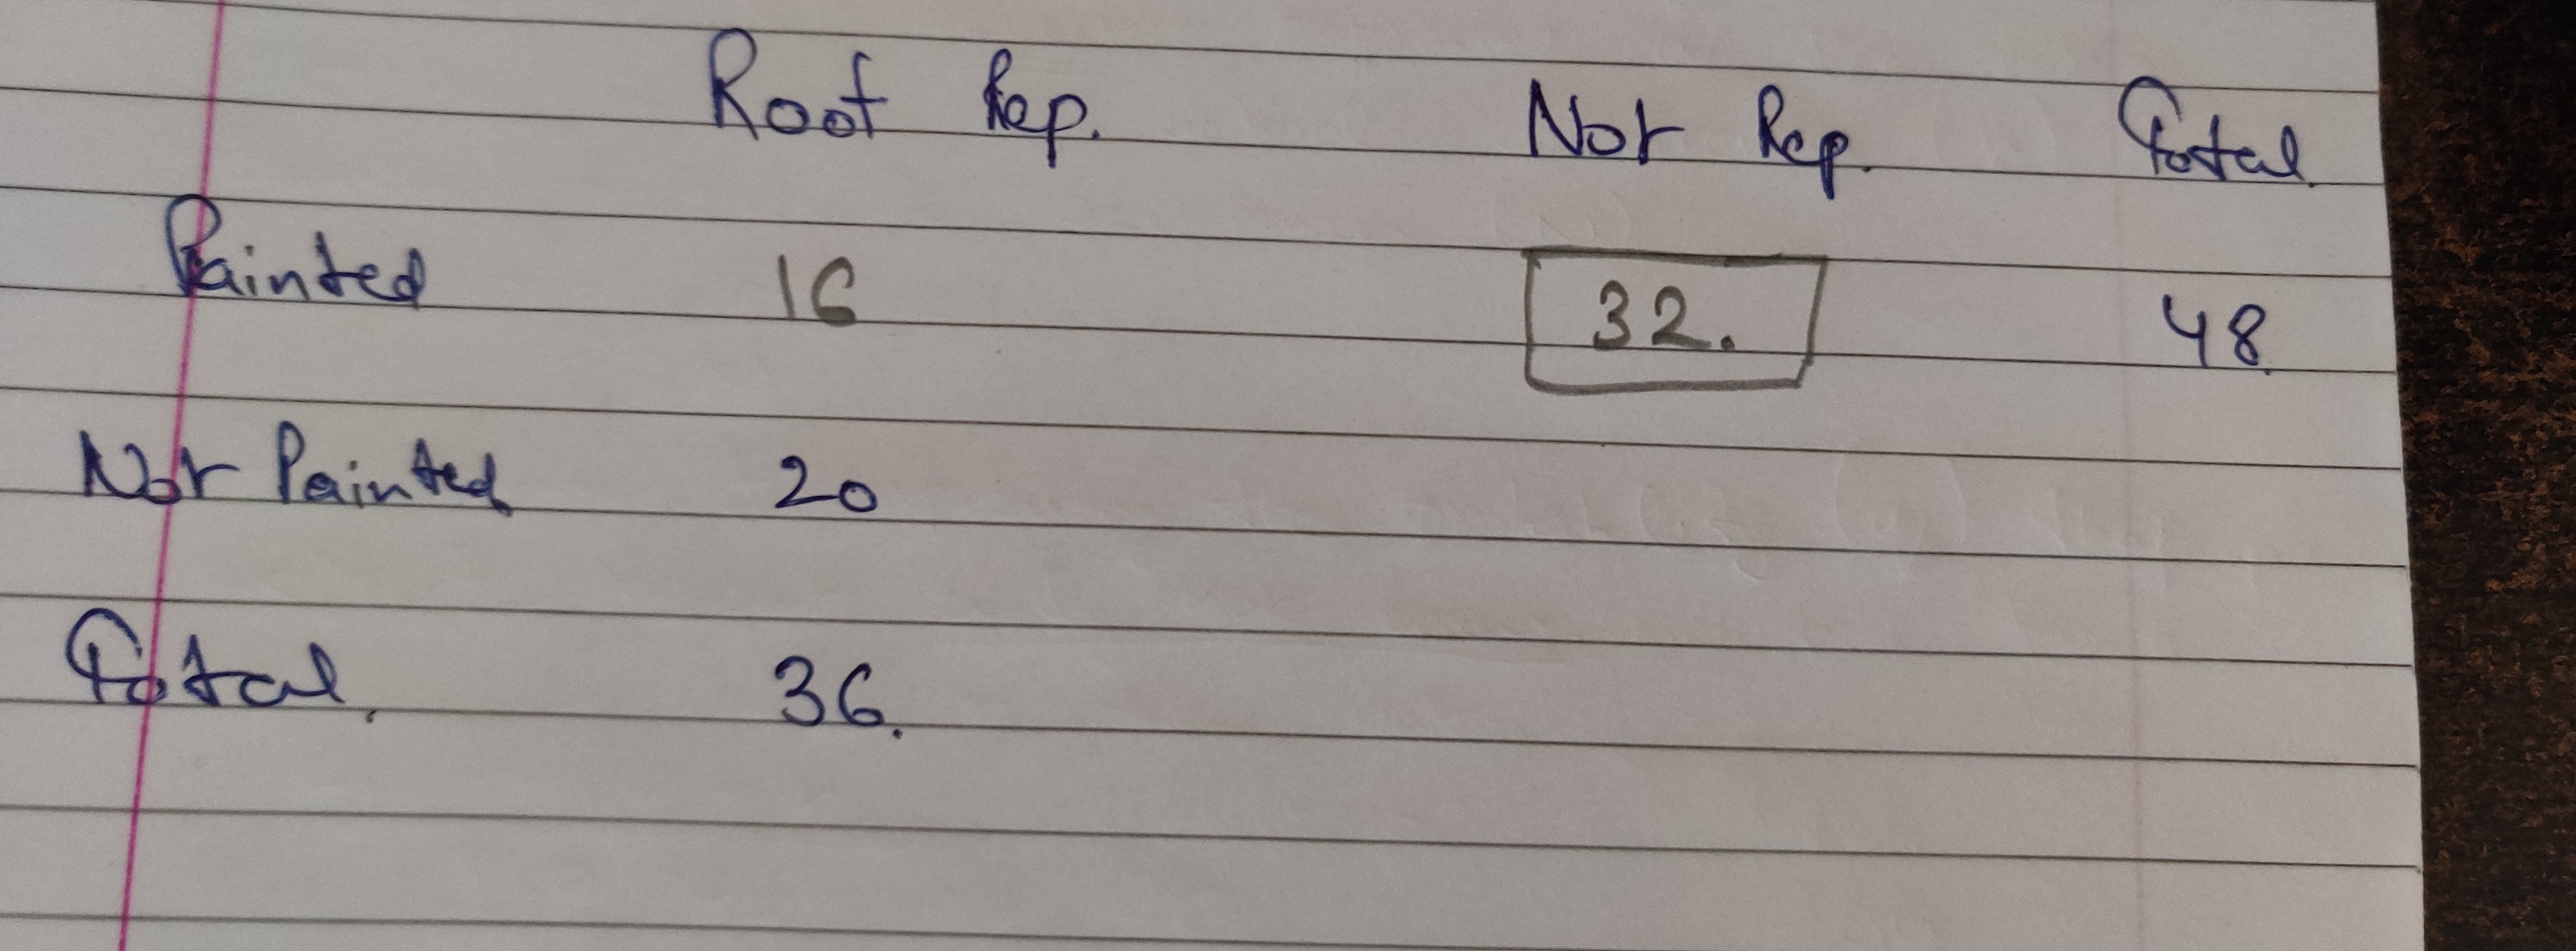 Roof Rep. Not Rep. Total.
Painted 16 32. 48.
Not Painted 20
Total. 36.